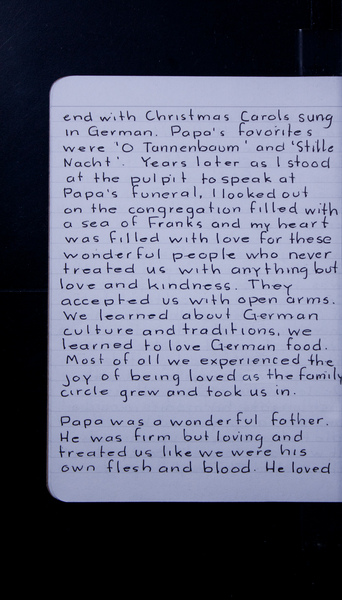 end with Christmas Carols sung
in German. Papa's favorites
were 'O Tannenbaum' and 'Stille
Nacht'. Years later as I stood
at the pulpit to speak at
Papa's funeral, I looked out
on the congregation filled with
a sea of Franks and my heart
was filled with love for these
wonderful people who never
treated us with anything but
love and kindness. They
accepted us with open arms.
We learned about German
culture and traditions, we
learned to love German food.
Most of all we experienced the
joy of being loved as the family
circle grew and took us in.
Papa was a wonderful father.
He was firm but loving and
treated us like we were his
own flesh and blood. He loved